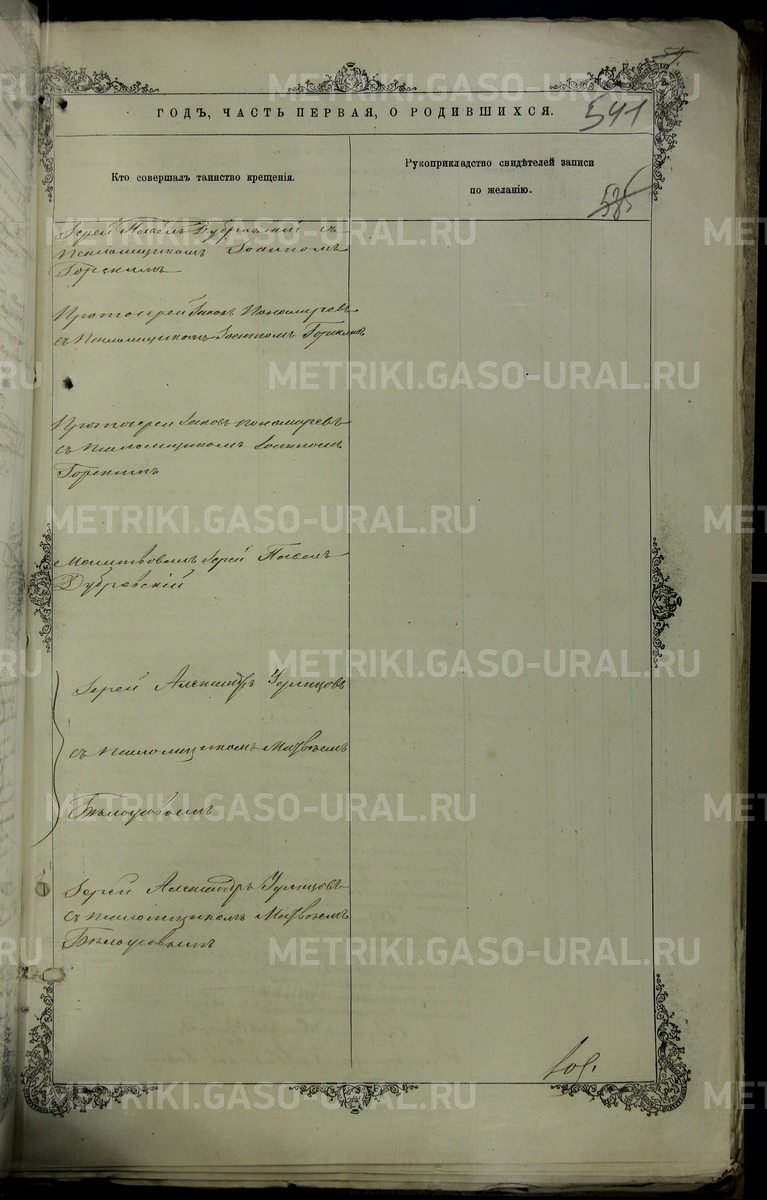 ГОДЪ, ЧАСТЬ ПЕРВАЯ, О РОДИВШИХСЯ.
541
Кто совершалъ таинство крещенія.
Рукоприкладство свидѣтелей записи
по желанію.
585
Іерей Павелъ Дубровскій съ
псаломщикомъ Іоанномъ
Горскимъ
Протоіерей Іаковъ Пономаревъ
съ псаломщикомъ Іоанномъ Горскимъ
Протоіерей Іаковъ Пономаревъ
съ псаломщикомъ Іоанномъ
Горскимъ
Молитвовалъ Іерей Павелъ
Дубровскій
Іерей Александръ Удинцовъ
съ псаломщикомъ Матвѣемъ
Бѣлоусовымъ
Іерей Александръ Удинцовъ
съ псаломщикомъ Матвѣемъ
Бѣлоусовымъ
METRIKI.GASO-URAL.RU